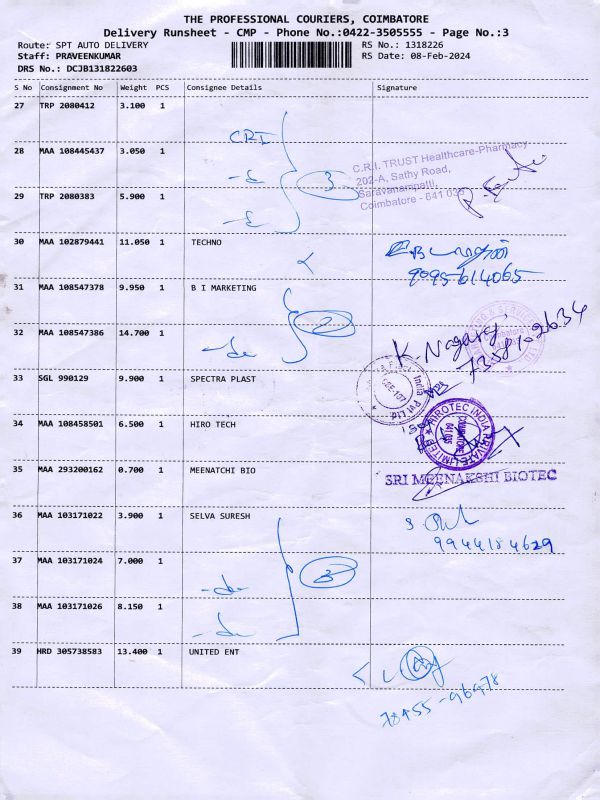 THE PROFESSIONAL COURIERS, COIMBATORE
Delivery Runsheet - CMP - Phone No.:0422-3505555 - Page No.:3
Route: SPT AUTO DELIVERY RS No.: 1318226
Staff: PRAVEENKUMAR RS Date: 08-Feb-2024
DRS No.: DCJB131822603
S No Consignment No Weight PCS Consignee Details Signature
27 TRP 2080412 3.100 1
CRI
28 MAA 108445437 3.050 1
C.R.I. TRUST Healthcare-Pharmacy
202-A, Sathy Road,
Saravanampatti,
Coimbatore - 641 035
3
29 TRP 2080383 5.900 1
30 MAA 102879441 11.050 1 TECHNO
9095614065
31 MAA 108547378 9.950 1 B I MARKETING
2
32 MAA 108547386 14.700 1
K. Nagaraj
7358102634
33 SGL 990129 9.900 1 SPECTRA PLAST
34 MAA 108458501 6.500 1 HIRO TECH
HIROTEC INDIA PRIVATE LIMITED
COIMBATORE
641 035
35 MAA 293200162 0.700 1 MEENATCHI BIO
SRI MEENAKSHI BIOTEC
36 MAA 103171022 3.900 1 SELVA SURESH
9944184629
37 MAA 103171024 7.000 1
3
38 MAA 103171026 8.150 1
39 HRD 305738583 13.400 1 UNITED ENT
78455-96978